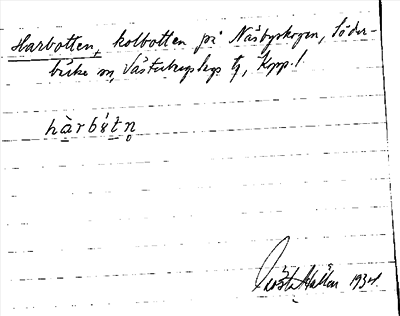 Harbotten, kolbotten på Näsbyskogen, Söder-
bärke sn, Västerbergslags tg, Kopp. l.
hàrbótn
Gösta Hallén 1934.